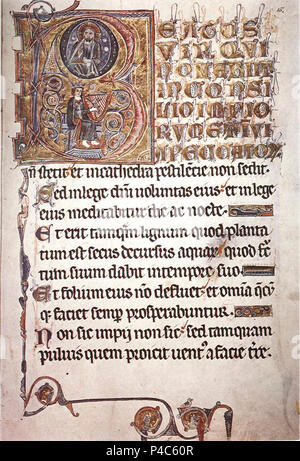 BEATUS
VIR QVI
NON ABIIT
IN CONSI
LIO IMPIO
RVM ET I VI
A PECCATOR
n̄ stetit et in cathedra pestilencie non sedit.
Sed in lege dn̄i voluntas eius et in lege
eius meditabitur die ac nocte.
Et erit tamq̄m lignum quod planta
tum est secus decursus aquar quod fr̄c
tum suum dabit in tempore suo.
Et folium eius nō defluet et om̄ia
q̄ faciet semp̄ prosperabuntur.
Non sic impij non sic sed tamquam
puluis quem proicit uent' a facie tr̄e.
alamy
P4C60R